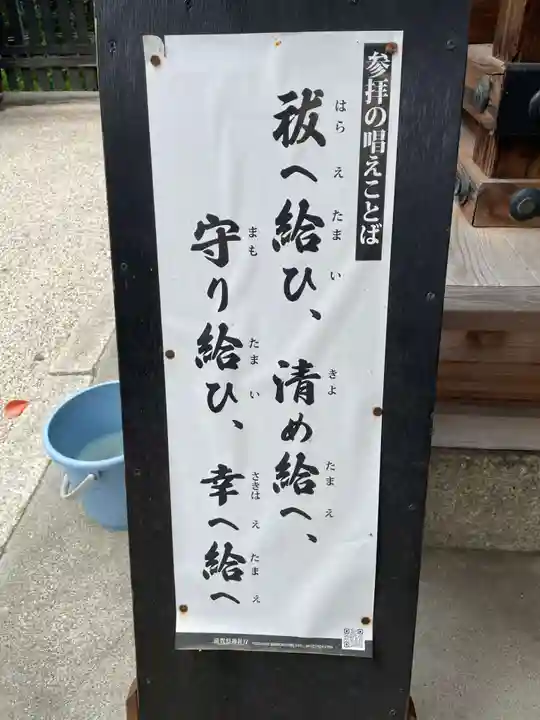 参拝の唱えことば
祓へ給ひ、清め給へ、
はら え たま い きよ たま え
守り給ひ、幸へ給へ
まも たま い さきは え たま え
滋賀県神社庁